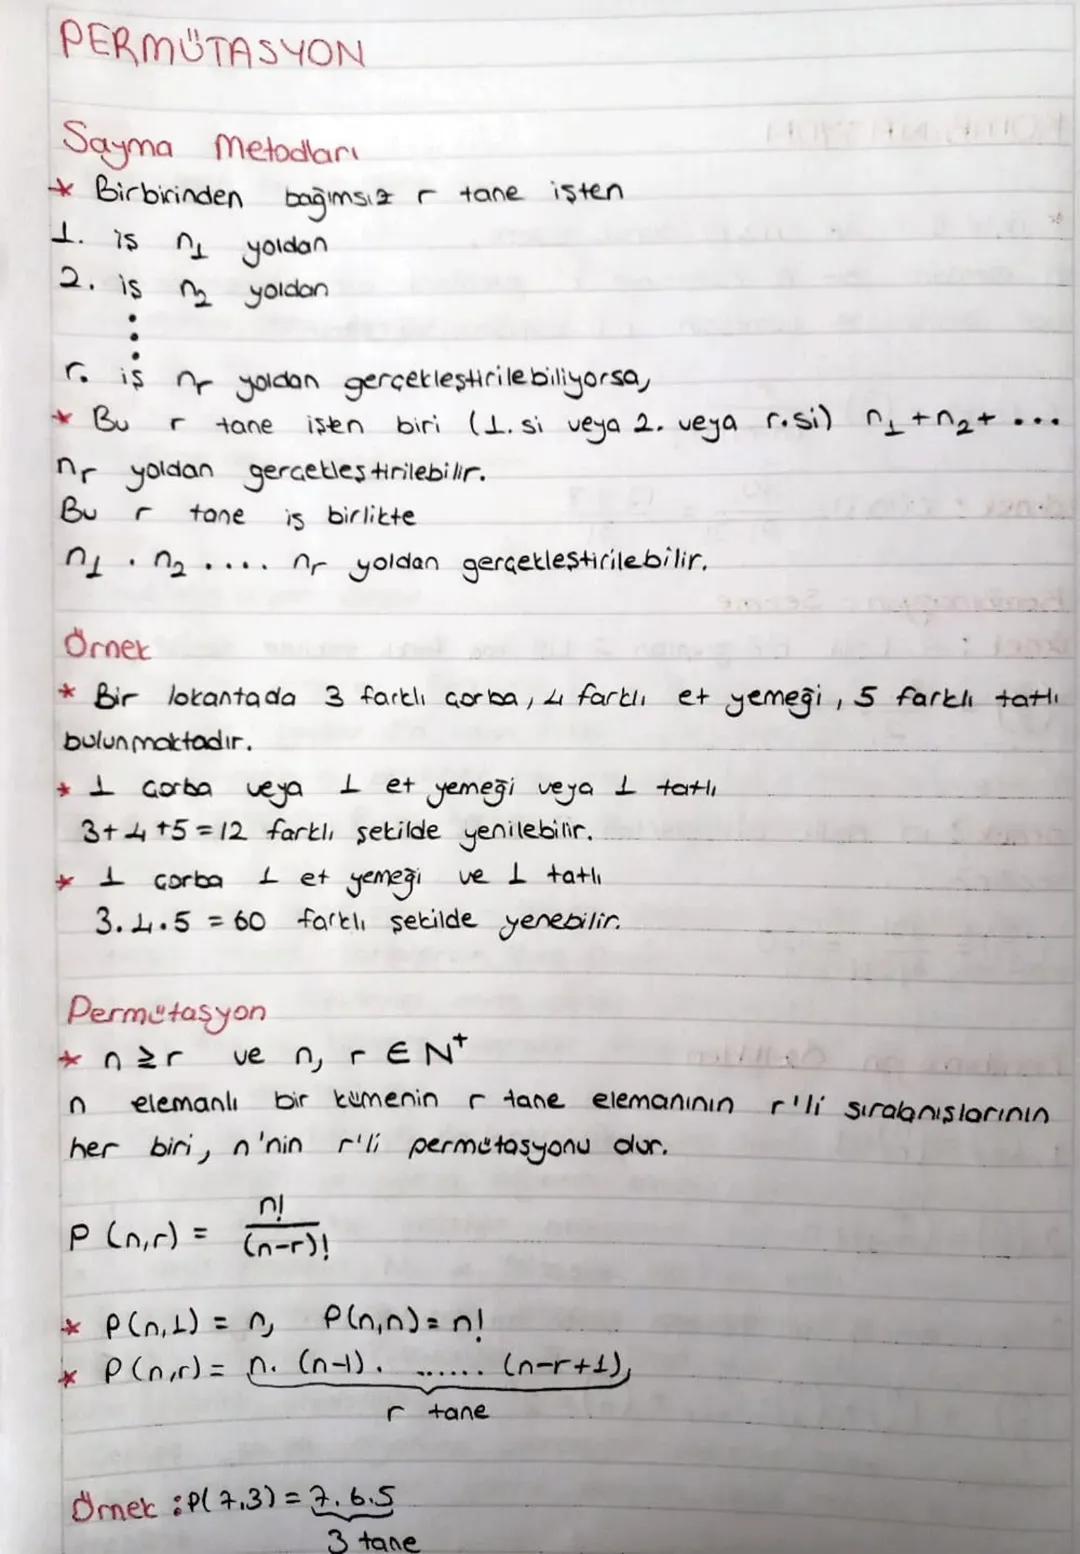 PERMÜTASYON
Sayma Metodları
* Birbirinden bağımsız r tane işten
1. iş n₁ yoldan
2. iş n₂ yoldan
r. iş nr yoldan gerçekleştirilebiliyorsa,
* Bu r tane işten biri (1. si veya 2. veya r.si) n₁ + n₂ + ...
nr yoldan gerçekleştirilebilir.
Bu r tane iş birlikte
n₁ . n₂ .... nr yoldan gerçekleştirilebilir.
Örnek
* Bir lokantada 3 farklı çorba, 4 farklı et yemeği, 5 farklı tatlı
bulunmaktadır.
* 1 çorba veya 1 et yemeği veya 1 tatlı
3+4+5=12 farklı şekilde yenilebilir.
* 1 çorba 1 et yemeği ve 1 tatlı
3.4.5 = 60 farklı şekilde yenebilir.
Permütasyon
* n ≥ r ve n, r ∈ N⁺
n elemanlı bir kümenin r tane elemanının r'li sıralanışlarının
her biri, n'nin r'li permütasyonu olur.
P (n,r) = n! / (n-r)!
* P(n,1) = n, P(n,n) = n!
* P(n,r) = n. (n-1). ...... (n-r+1),
r tane
Örnek : P(7,3) = 7.6.5
3 tane